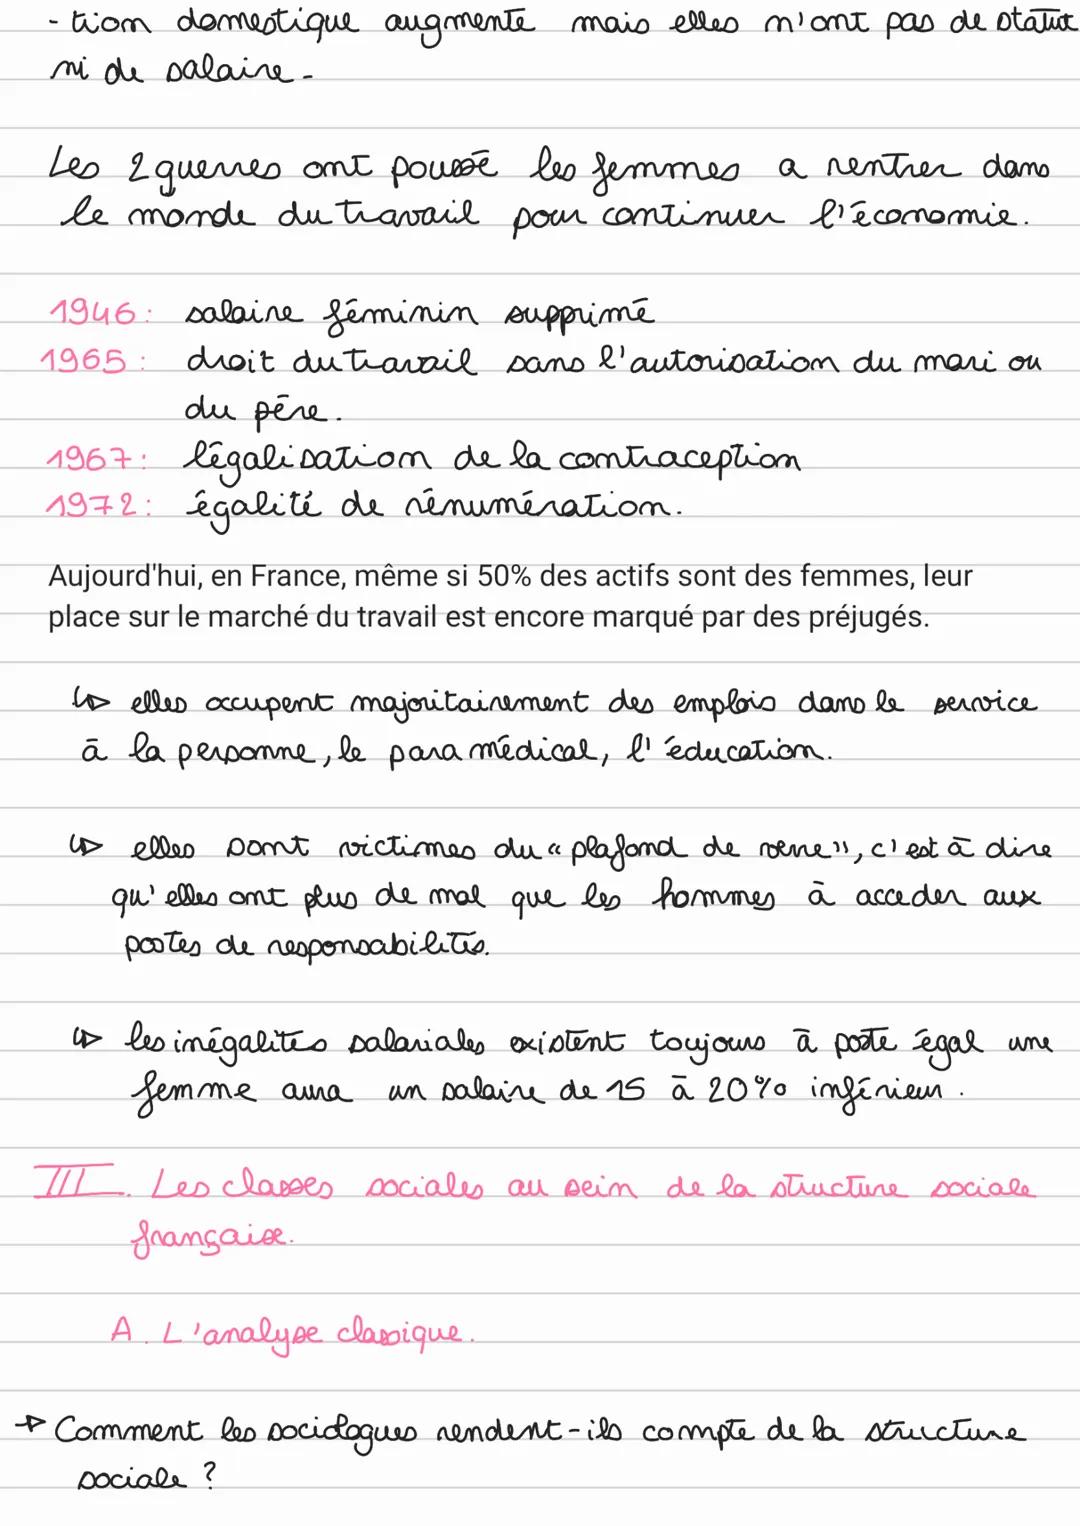 -tion domestique augmente mais elles n'ont pas de statut
ni de salaire-
Les 2 guerres ont poussé les femmes a rentrer dans
le monde du travail pour continuer l'économie.
1946: salaire féminin supprimé
1965: droit du travail sans l'autorisation du mari ou
du père.
1967: légalisation de la contraception
1972: égalité de rénumération.
Aujourd'hui, en France, même si 50% des actifs sont des femmes, leur
place sur le marché du travail est encore marqué par des préjugés.
↳ elles occupent majoritairement des emplois dans le service
à la personne, le para médical, l'éducation.
↳ elles sont victimes du « plafond de verre », c'est à dire
qu'elles ont plus de mal que les hommes à acceder aux
postes de responsabilités.
↳ les inégalités salariales existent toujours à poste égal une
femme aura un salaire de 15 à 20% inférieur.
III. Les classes sociales au sein de la structure sociale
française.
A. L'analyse classique.
→ Comment les sociologues rendent-ils compte de la structure
sociale ?